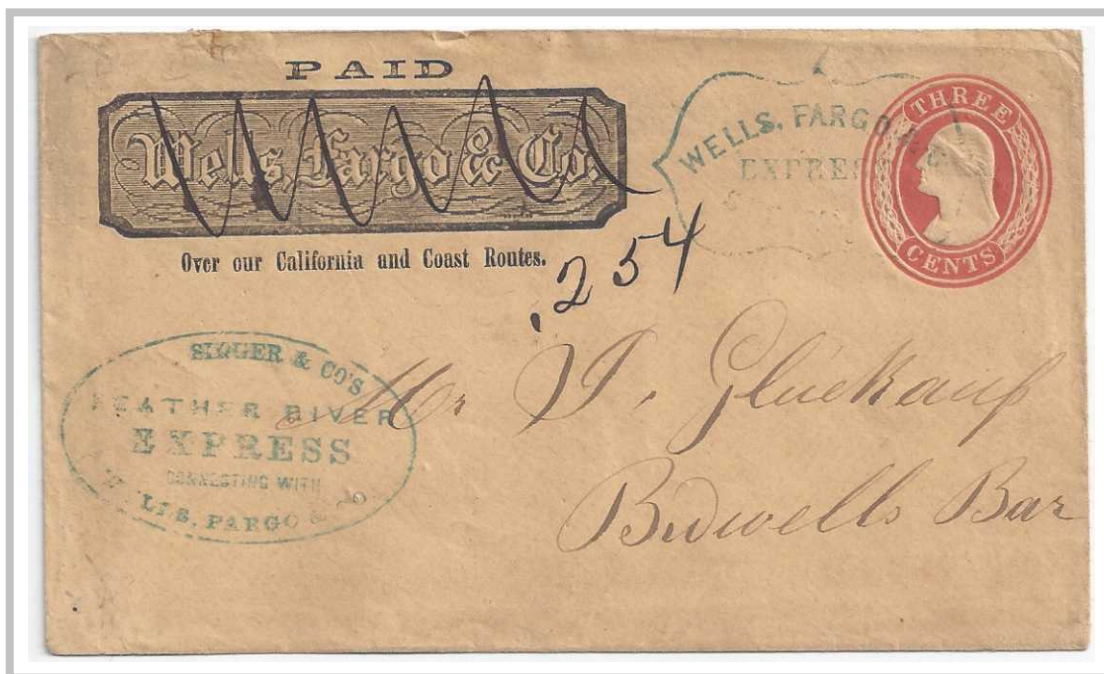 PAID
Wells, Fargo & Co.
Over our California and Coast Routes.
WELLS, FARGO
EXPRESS
THREE
CENTS
.254
SINGER & CO'S
FEATHER RIVER
EXPRESS
CONNECTING WITH
WELLS, FARGO &
Mr I. Gluckauf
Bidwells Bar